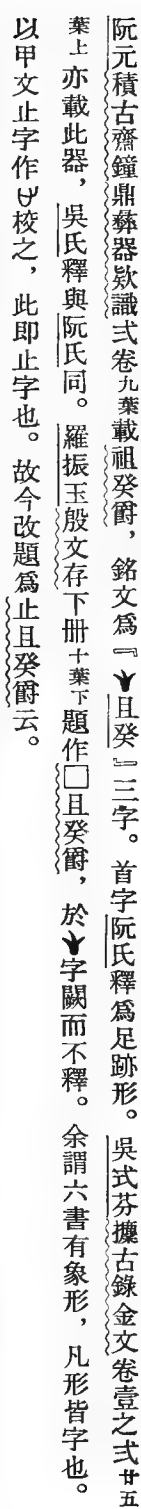 阮元積古齋鐘鼎彝器欵識弍卷九葉載祖癸爵，銘文爲『且癸』三字。首字阮氏釋爲足跡形。吳式芬攗古錄金文卷壹之弍廿五
葉上亦載此器，吳氏釋與阮氏同。羅振玉殷文存下册十葉下題作□且癸爵，於字闕而不釋。余謂六書有象形，凡形皆字也。
以甲文止字作校之，此卽止字也。故今改題爲止且癸爵云。